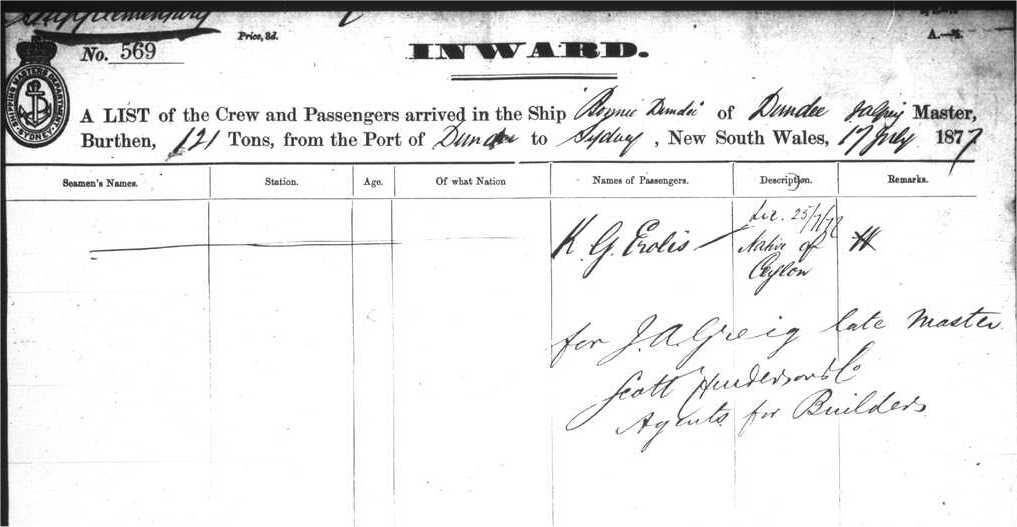 Supplementary
Price, 3d.
A.—
No. 569
INWARD.
SHIPPING MASTERS DEPARTMENT SYDNEY
A LIST of the Crew and Passengers arrived in the Ship "Bonnie Dundee" of Dundee JAGreig Master,
Burthen, 121 Tons, from the Port of Dundee to Sydney, New South Wales, 17 July 1877
Seamen's Names. Station. Age. Of what Nation Names of Passengers. Description. Remarks.
25/7/77
K. G. Erolis Native of
Ceylon
for J. A. Greig late Master
Scott Henderson & Co
Agents for Builders